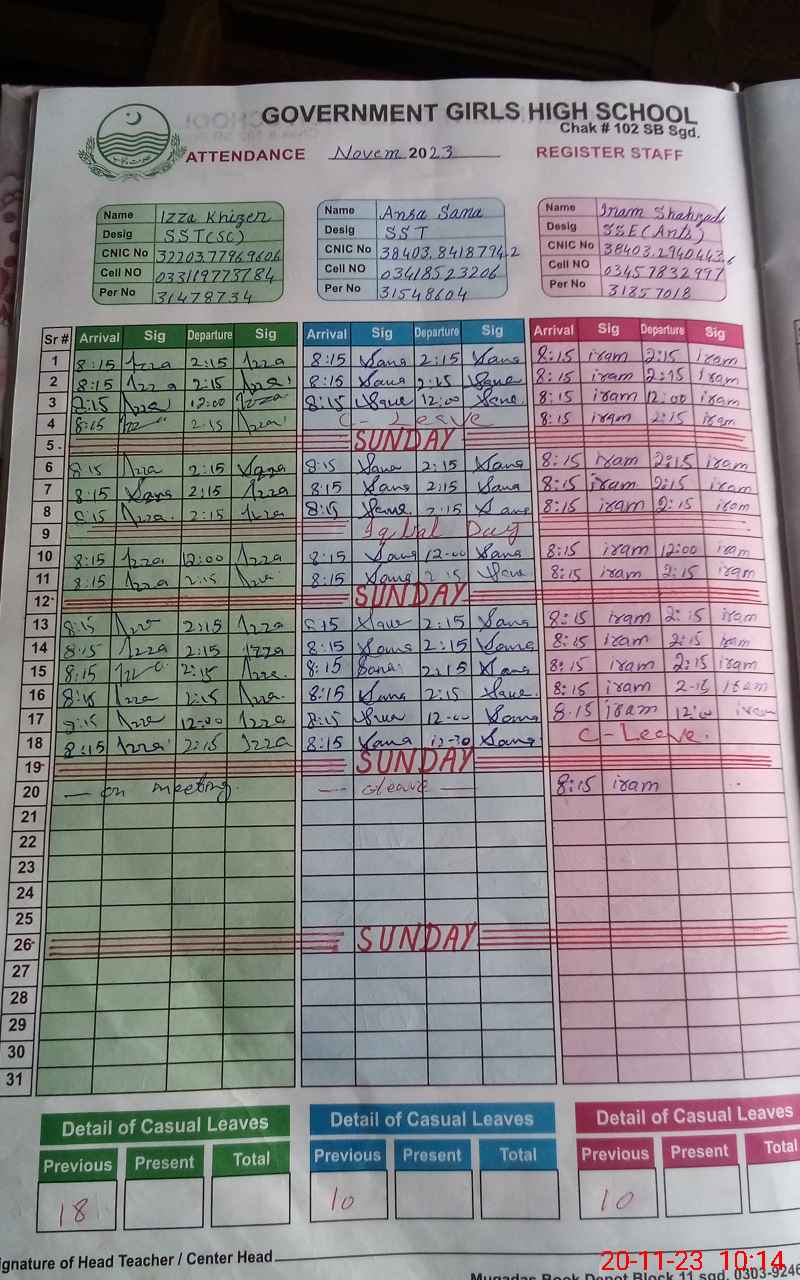 GOVERNMENT GIRLS HIGH SCHOOL
Chak # 102 SB Sgd.
ATTENDANCE Novem 2023 REGISTER STAFF
Name Izza Khizer Name Ansa Sana Name Iram Shahzadi
Desig SST(SC) Desig SST Desig SSE(Arts)
CNIC No 32203.77969606 CNIC No 38403.8418794.2 CNIC No 38403.2940443.6
Cell NO 033119773784 Cell NO 03418523206 Cell NO 03457832997
Per No 31478734 Per No 31548604 Per No 31857018
Sr # Arrival Sig Departure Sig Arrival Sig Departure Sig Arrival Sig Departure Sig
1 8:15 Izza 2:15 Izza 8:15 Sana 2:15 Sana 8:15 iram 2:15 iram
2 8:15 Izza 2:15 Izza 8:15 Sana 2:15 Sana 8:15 iram 2:15 iram
3 8:15 Izza 12:00 Izza 8:15 Sana 12:00 Sana 8:15 iram 12:00 iram
4 8:15 Izza 2:15 Izza C-Leave 8:15 iram 2:15 iram
5 SUNDAY
6 8:15 Izza 2:15 Izza 8:15 Sana 2:15 Sana 8:15 iram 2:15 iram
7 8:15 Sana 2:15 Izza 8:15 Sana 2:15 Sana 8:15 iram 2:15 iram
8 8:15 Izza 2:15 Izza 8:15 Sana 2:15 Sana 8:15 iram 2:15 iram
9 Iqbal Day
10 8:15 Izza 12:00 Izza 8:15 Sana 12-00 Sana 8:15 iram 12:00 iram
11 8:15 Izza 2:15 Izza 8:15 Sana 2:15 Sana 8:15 iram 2:15 iram
12 SUNDAY
13 8:15 Izza 2:15 Izza 8:15 Sana 2:15 Sana 8:15 iram 2:15 iram
14 8:15 Izza 2:15 Izza 8:15 Sana 2:15 Sana 8:15 iram 2:15 iram
15 8:15 Izza 2:15 Izza 8:15 Sana 2:15 Sana 8:15 iram 2:15 iram
16 8:15 Izza 2:15 Izza 8:15 Sana 2:15 Sana 8:15 iram 2-15 iram
17 8:15 Izza 12-00 Izza 8:15 Sana 12-00 Sana 8:15 iram 12:00 iram
18 8:15 Izza 2:15 Izza 8:15 Sana 12-30 Sana C-Leave.
19 SUNDAY
20 — on meeting. — cleave — 8:15 iram
21
22
23
24
25
26 SUNDAY
27
28
29
30
31
Detail of Casual Leaves Detail of Casual Leaves Detail of Casual Leaves
Previous Present Total Previous Present Total Previous Present Total
18 10 10
ignature of Head Teacher / Center Head
Muqadas Book Depot Block 11 sgd. 0303-9246
20-11-23 10:14